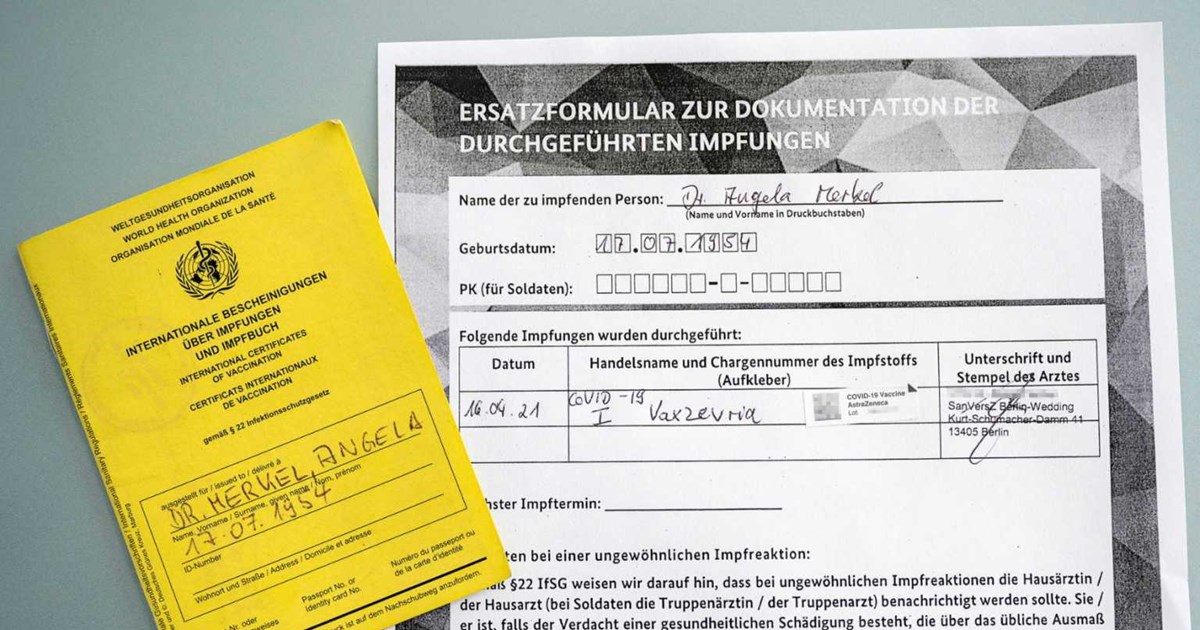 WELTGESUNDHEITSORGANISATION
WORLD HEALTH ORGANIZATION
ORGANISATION MONDIALE DE LA SANTÉ
INTERNATIONALE BESCHEINIGUNGEN
ÜBER IMPFUNGEN
UND IMPFBUCH
INTERNATIONAL CERTIFICATES
OF VACCINATION
CERTIFICATS INTERNATIONAUX
DE VACCINATION
gemäß § 22 Infektionsschutzgesetz
ausgestellt für / issued to / délivré à
DR. MERKEL, ANGELA
Name, Vorname / Surname, given name / Nom, prénom
17.07.1954
ID-Number
Wohnort und Straße / Address / Domicile et adresse
Passport No. or
Identity card No.
Numéro du passeport ou
de la carte d'identité
Nr. oder
ist auf dem Nachschubweg anzufordern.
International Sanitary Regulations
ERSATZFORMULAR ZUR DOKUMENTATION DER
DURCHGEFÜHRTEN IMPFUNGEN
Name der zu impfenden Person: Dr. Angela Merkel
(Name und Vorname in Druckbuchstaben)
Geburtsdatum: 17.07.1954
PK (für Soldaten): - -
Folgende Impfungen wurden durchgeführt:
Datum
Handelsname und Chargennummer des Impfstoffs
(Aufkleber)
Unterschrift und
Stempel des Arztes
16.04.21
COVID-19
I Vaxzevria
COVID-19 Vaccine
AstraZeneca
Lot
SanVersZ Berlin-Wedding
Kurt-Schumacher-Damm 41
13405 Berlin
hster Impftermin:
ten bei einer ungewöhnlichen Impfreaktion:
§22 IfSG weisen wir darauf hin, dass bei ungewöhnlichen Impfreaktionen die Hausärztin /
der Hausarzt (bei Soldaten die Truppenärztin / der Truppenarzt) benachrichtigt werden sollte. Sie /
er ist, falls der Verdacht einer gesundheitlichen Schädigung besteht, die über das übliche Ausmaß